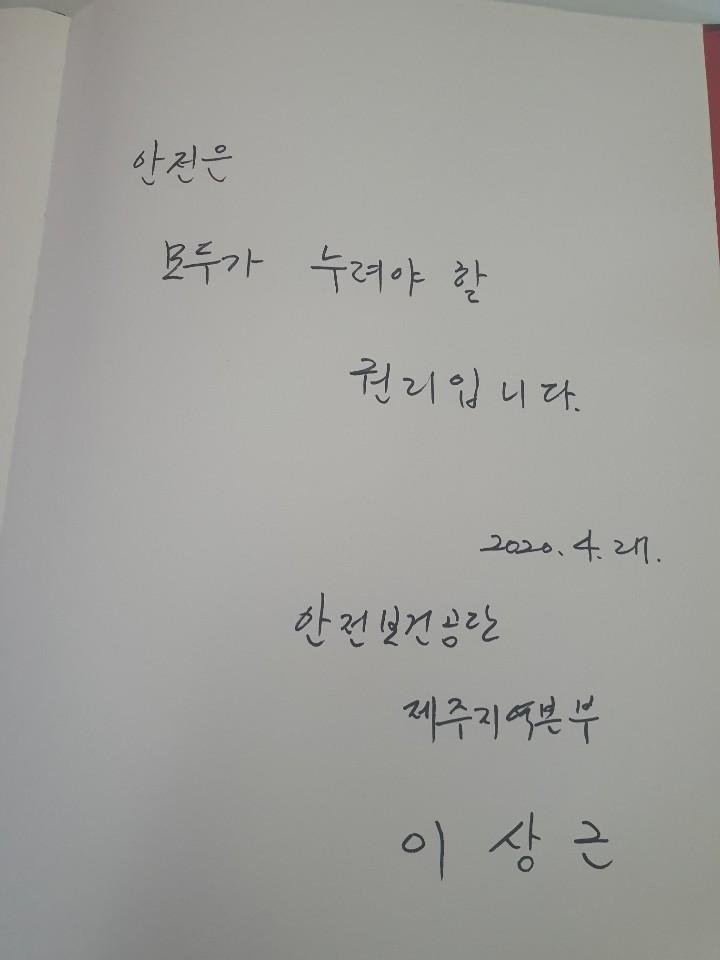 안전은
모두가 누려야 할
권리입니다.
2020. 4. 27.
안전보건공단
제주지역본부
이 상 근